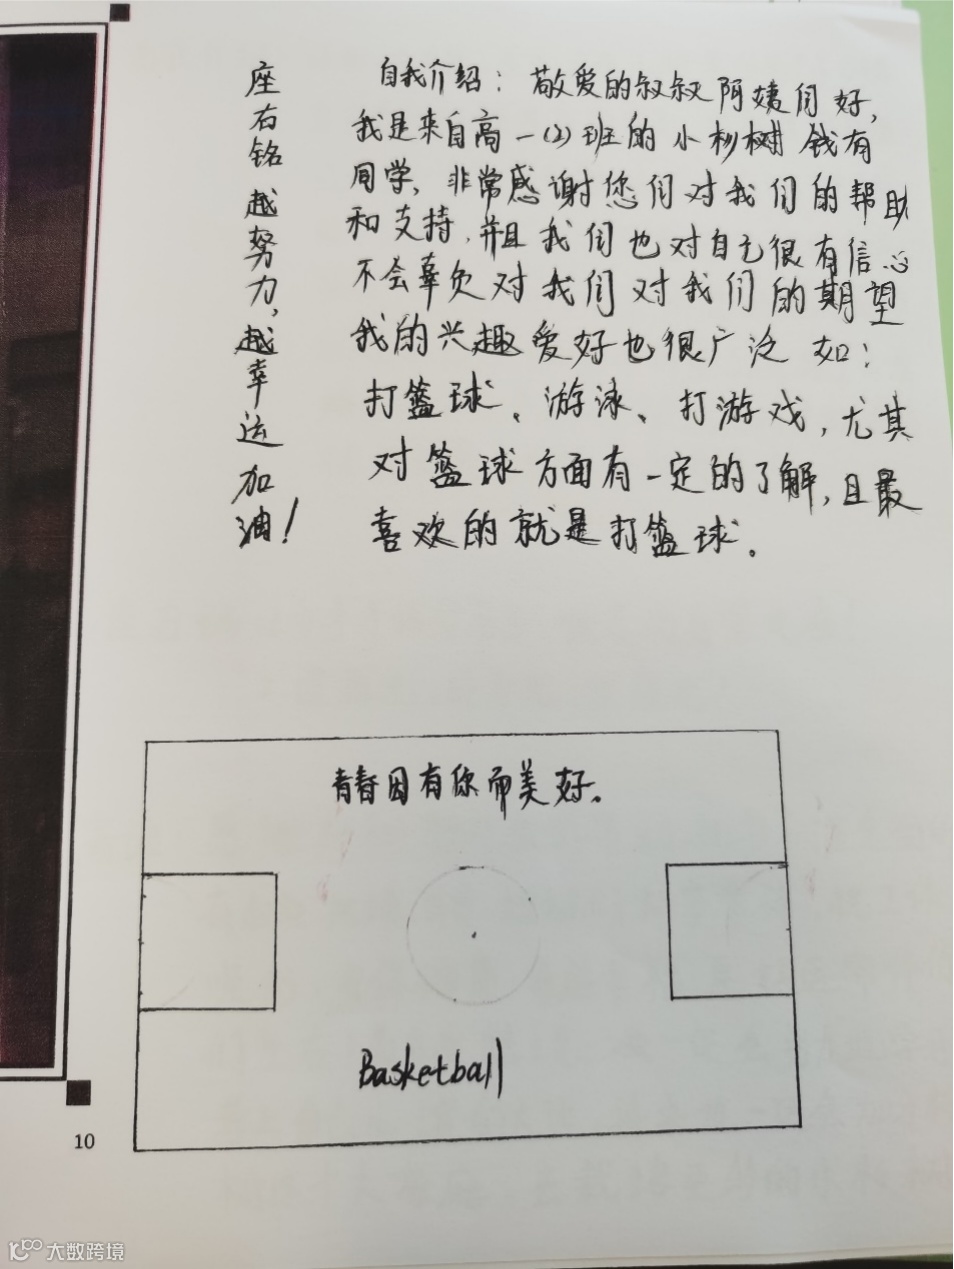 座右铭 越努力,越幸运 加油!
自我介绍:敬爱的叔叔阿姨们好,
我是来自高一(2)班的小杉树 钱有
同学,非常感谢您们对我们的帮助
和支持,并且我们也对自己很有信心
不会辜负对我们对我们的期望
我的兴趣爱好也很广泛 如:
打篮球、游泳、打游戏,尤其
对篮球方面有一定的了解,且最
喜欢的就是打篮球。
青春因有你而美好。
Basketball
10
大数跨境